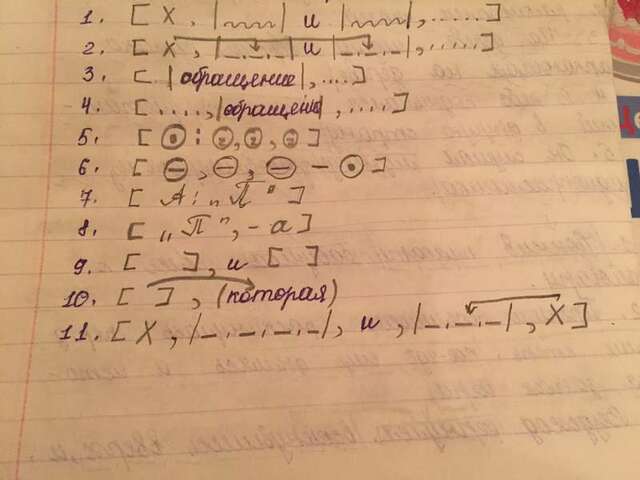 1. [X, |~~~| и |~~~|, .....]
2. [X, |-.-.-| и |-.-.-|, .....]
3. [ |обращение|, ....]
4. [....., |обращение|, .....]
5. [⊙: ○, ○, ○]
6. [⊖, ⊖, ⊖ – ⊙]
7. [А: „П"]
8. [„П", - а]
9. [ ], и [ ]
10. [ ], (которая)
11. [X, |-.-.-.-|, и, |-.-.-|, X].